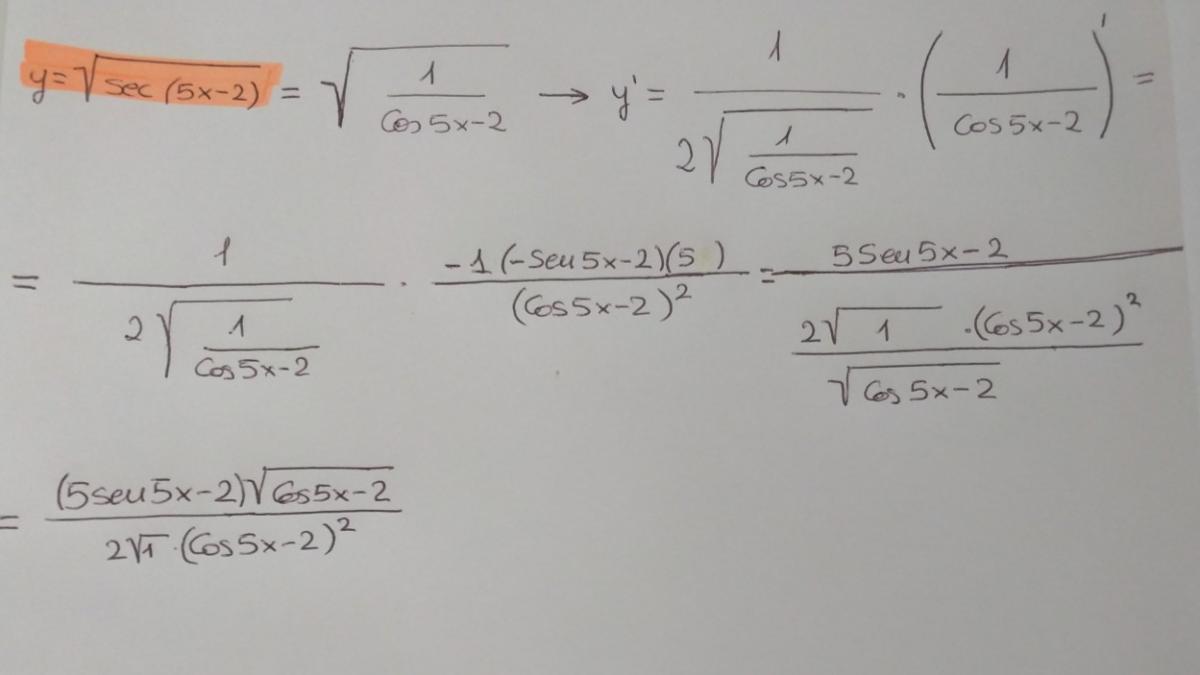 y = √(sec (5x-2)) = √(1/(Cos 5x-2)) → y' = 1/(2√(1/(Cos5x-2))) · (1/(cos 5x-2))' =
= 1/(2√(1/(Cos5x-2))) · (-1(-Sen5x-2)(5))/((Cos5x-2)²) = (5Sen5x-2)/((2√1 · (Cos5x-2)²)/(√(Cos5x-2)))
= ((5sen5x-2)√(Cos5x-2))/(2√1 · (Cos5x-2)²)